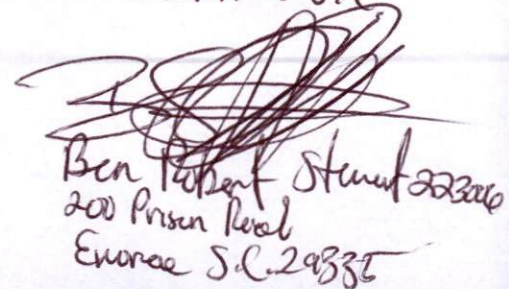 Ben Robert Stewart 223006
200 Prison Road
Enoree S.C. 29335